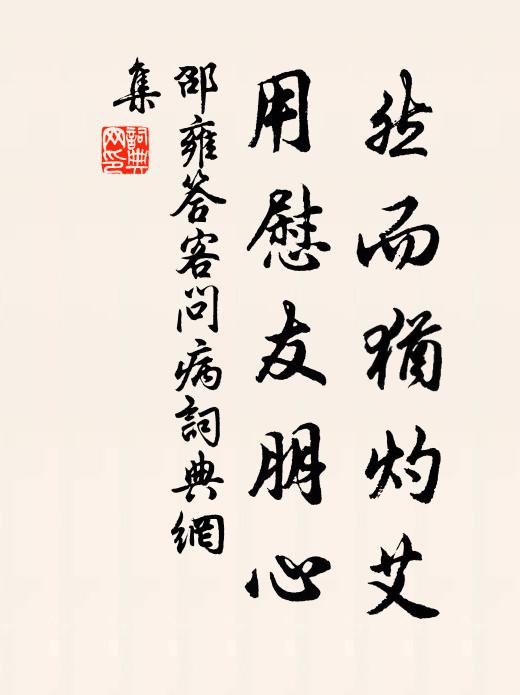 然而猶灼艾
用慰友朋心
邵雍答客問病詞典網
集
詞典
网印